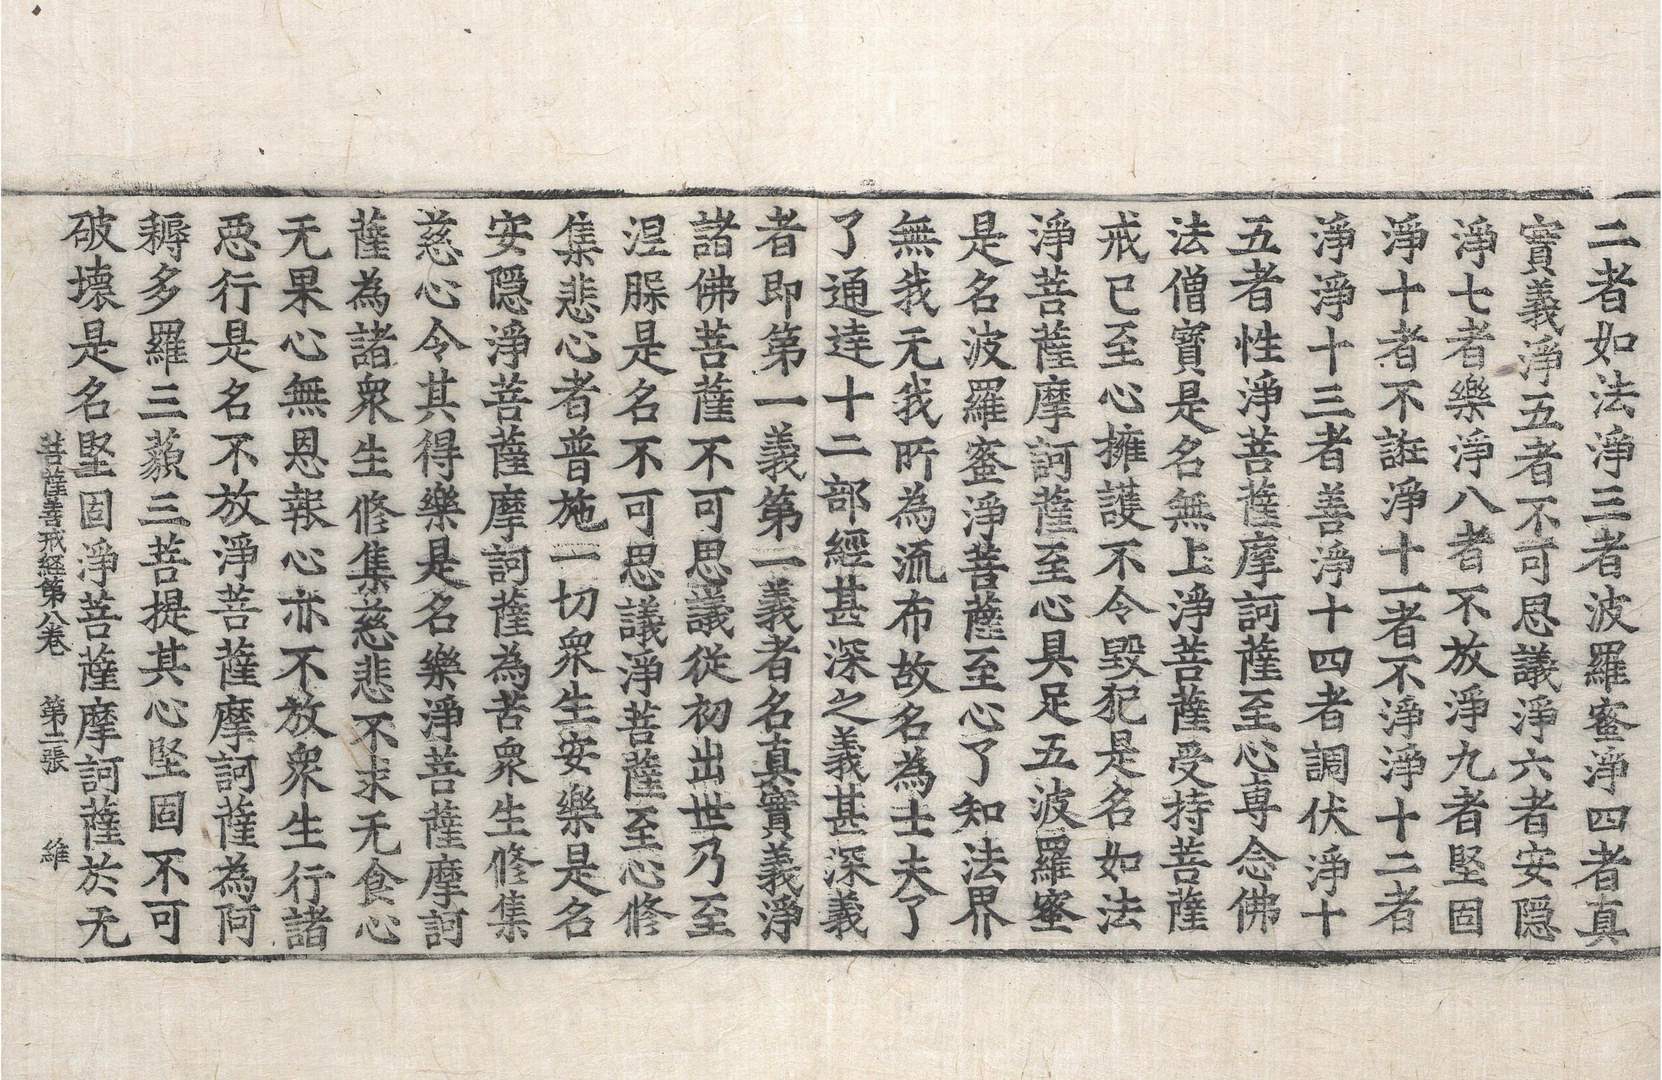 二者如法淨三者波羅蜜淨四者真
實義淨五者不可思議淨六者安隱
淨七者樂淨八者不放淨九者堅固
淨十者不誑淨十一者不淨淨十二者
淨淨十三者善淨十四者調伏淨十
五者性淨菩薩摩訶薩至心専念佛
法僧寶是名無上淨菩薩受持菩薩
戒已至心擁護不令毀犯是名如法
淨菩薩摩訶薩至心具足五波羅蜜
是名波羅蜜淨菩薩至心了知法界
無我无我所為流布故名為士夫了
了通達十二部經甚深之義甚深義
者即第一義第一義者名真實義淨
諸佛菩薩不可思議從初出世乃至
涅槃是名不可思議淨菩薩至心修
集悲心者普施一切衆生安樂是名
安隱淨菩薩摩訶薩為苦衆生修集
慈心令其得樂是名樂淨菩薩摩訶
薩為諸衆生修集慈悲不求无食心
无果心無恩報心亦不放衆生行諸
惡行是名不放淨菩薩摩訶薩為阿
耨多羅三藐三菩提其心堅固不可
破壞是名堅固淨菩薩摩訶薩於无
菩薩善戒經第八卷 第二張 維